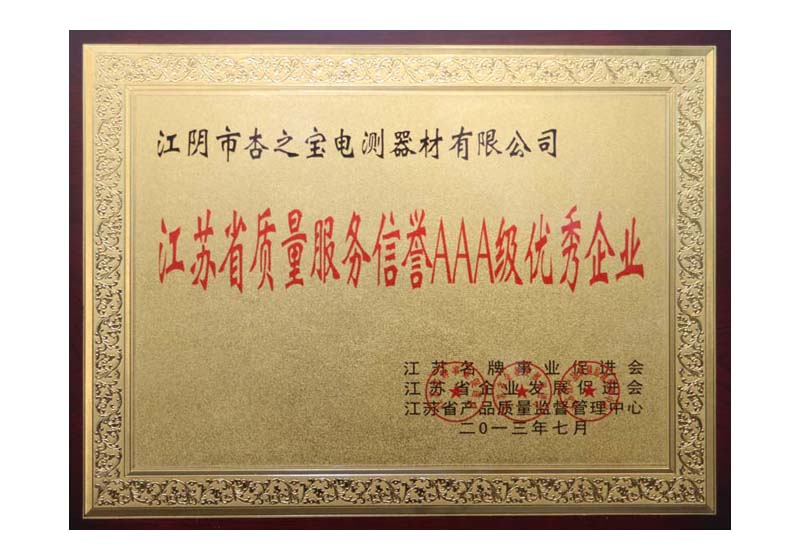 江阴市杏之宝电测器材有限公司
江苏省质量服务信誉AAA级优秀企业
江苏名牌事业促进会
江苏省企业发展促进会
江苏省产品质量监督管理中心
二0一三年七月